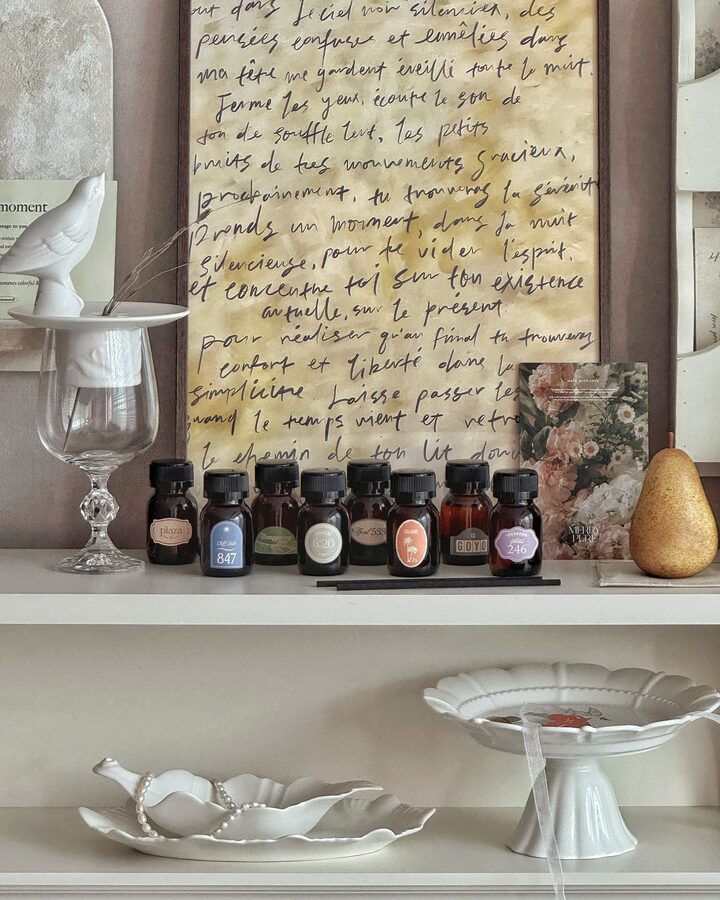 out dans le ciel noir silencieux, des
pensées confuses et emmêlées dans
ma tête me gardent éveillé toute la nuit.
Ferme les yeux, écoute le son de
ton de souffle lent, les petits
bruits de tes mouvements gracieux,
prochainement, tu trouveras la sérénité
Prends un moment, dans la nuit
silencieuse, pour te vider l'esprit,
et concentre toi sur ton existence
actuelle, sur le présent.
pour réaliser qu'au final tu trouveras
confort et liberté dans la
simplicité Laisse passer les
quand le temps vient et retro
le chemin de ton lit douc
moment
plaza
847
6:20
535
ISLAND
10
GOYO
246
MERRY